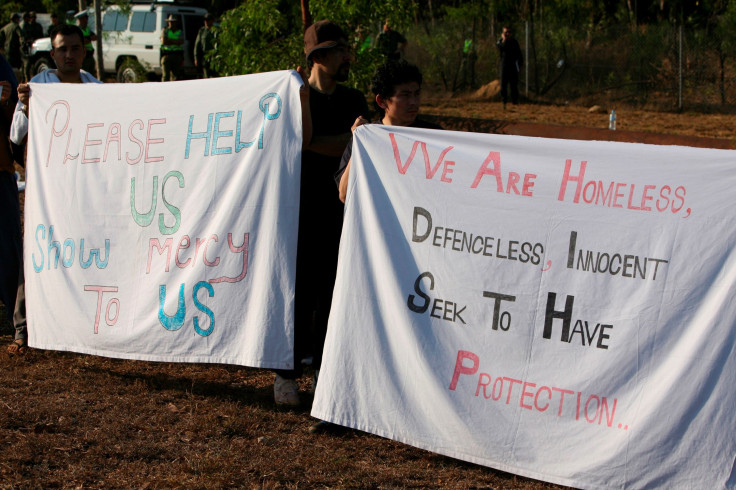 PLEASE HELP
US
SHOW MERCY
TO US
WE ARE HOMELESS,
DEFENCELESS, INNOCENT
SEEK TO HAVE
PROTECTION..